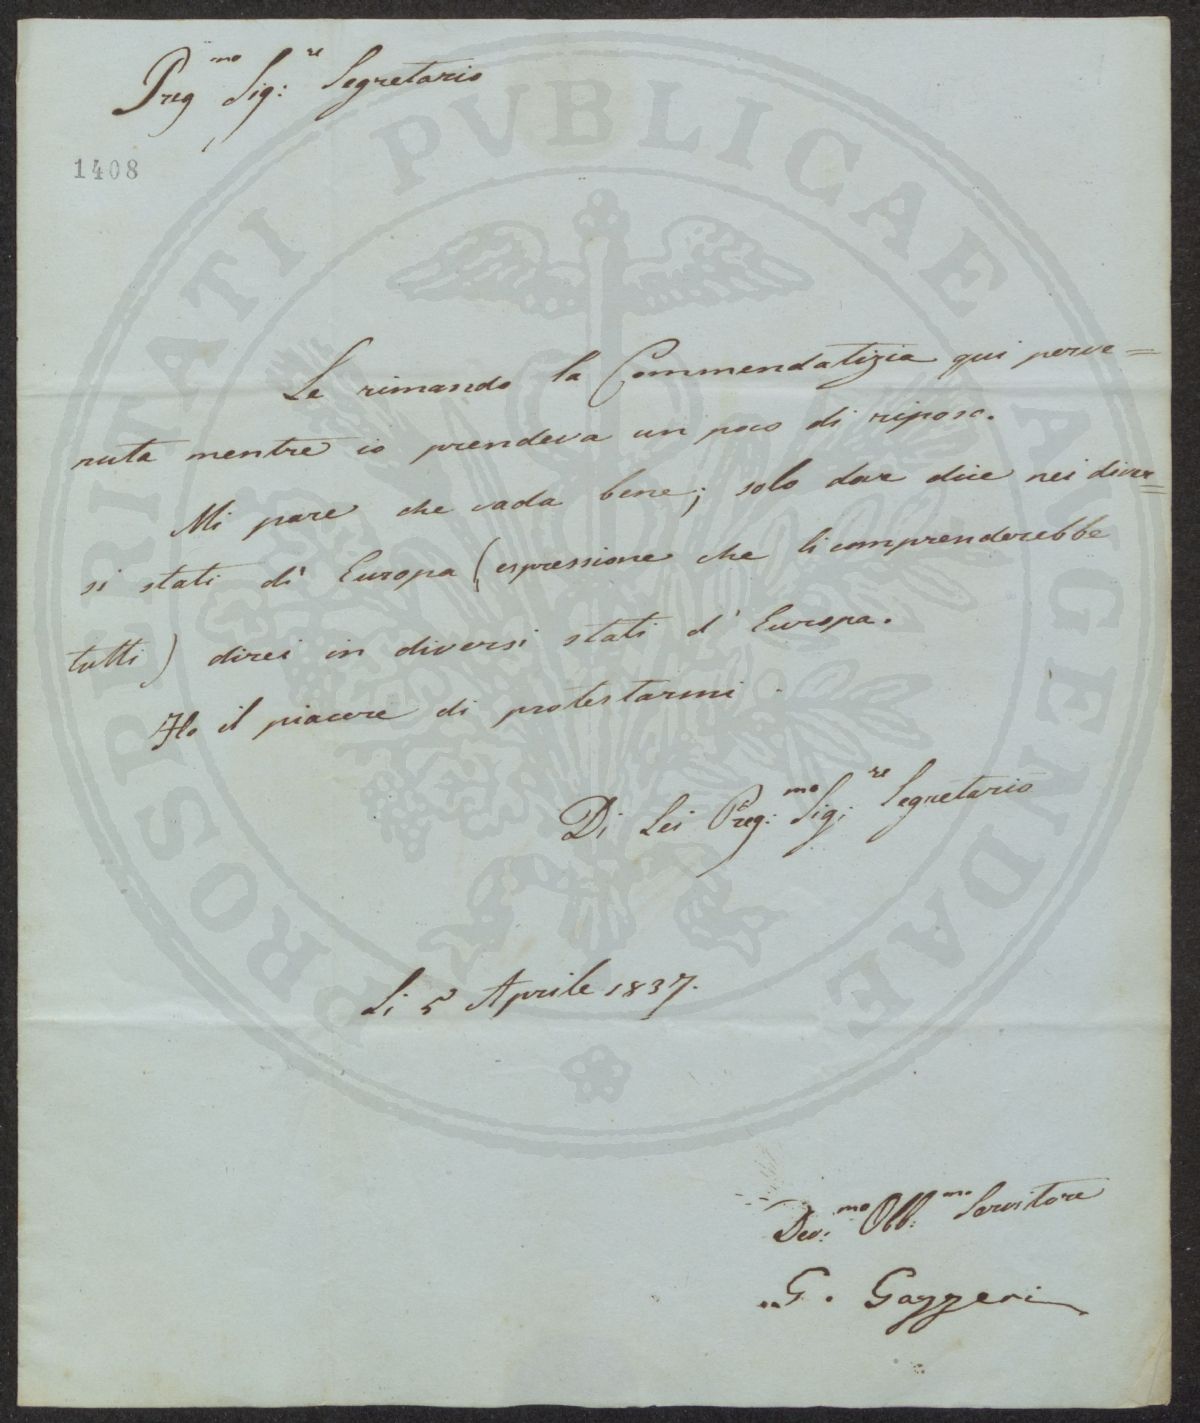 Preg.mo Sig:re Segretario
1408
Le rimando la Commendatizia qui perve=
nuta mentre io prendeva un poco di riposo.
Mi pare che vada bene; solo dove dice nei diver=
si stati di Europa (espressione che li comprenderebbe
tutti) direi in diversi stati d'Europa.
Ho il piacere di protestarmi.
Di Lei Preg:mo Sig:re Segretario
Li 5 Aprile 1837.
Dev:mo Obb:mo Servitore
G. Gazzeri
PROSPERITATI PVBLICAE AVGENDAE